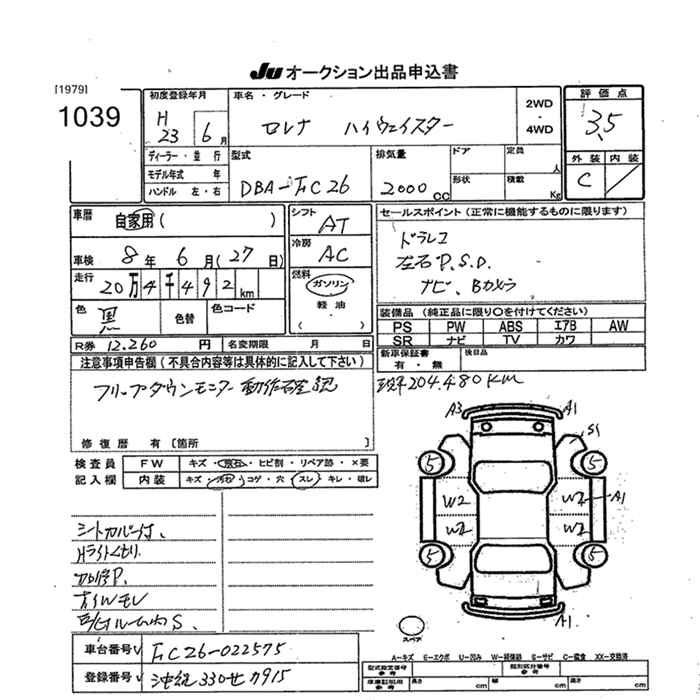 JU オークション出品申込書
[1979]
1039
初度登録年月
H 23 6 月
車名・グレード
セレナ ハイウェイスター
2WD
・
4WD
評価点
3.5
ディーラー・並行
モデル年式 年
ハンドル 左・右
型式
DBA-FC26
排気量
2000 cc
ドア
定員 人
形状
積載 Kg
外装 内装
C
車暦
自家用 ( )
シフト
AT
セールスポイント (正常に機能するものに限ります)
ドラレコ
左右P.S.D.
ナビ、Bカメラ
車検 8 年 6 月 ( 27 日)
冷房
AC
走行 20万4千492 km
燃料
ガソリン
軽油
( )
色 黒
色替
色コード
装備品 (純正品に限り○を付けてください)
PS PW ABS エアB AW
SR ナビ TV カワ
R券 12,260 円
名変期限 月 日
新車保証書
有・無
後日品
注意事項申告欄 (不具合内容等は具体的に記入して下さい)
フリップダウンモニター動作確認
現車204,480KM
修復歴 有 [箇所 ]
検査員
記入欄
FW キズ・飛石・ヒビ割・リペア跡・×要
内装 キズ・汚れ・コゲ・穴・スレ・キレ・破レ
シートカバー付、
Hライトくもり
A3 A1
S1
5 5
W2 W2 A1
W2 W2
5 5
A1
スペア
車台番号 FC26-022575
登録番号 沖縄330せ7915
A-キズ E-エクボ U-凹み W-補修跡 S-サビ C-腐食 XX-交換済
型式指定番号
参考
類別区分番号
参考
車庫証明用
参考
長さ cm
幅 cm
高さ cm